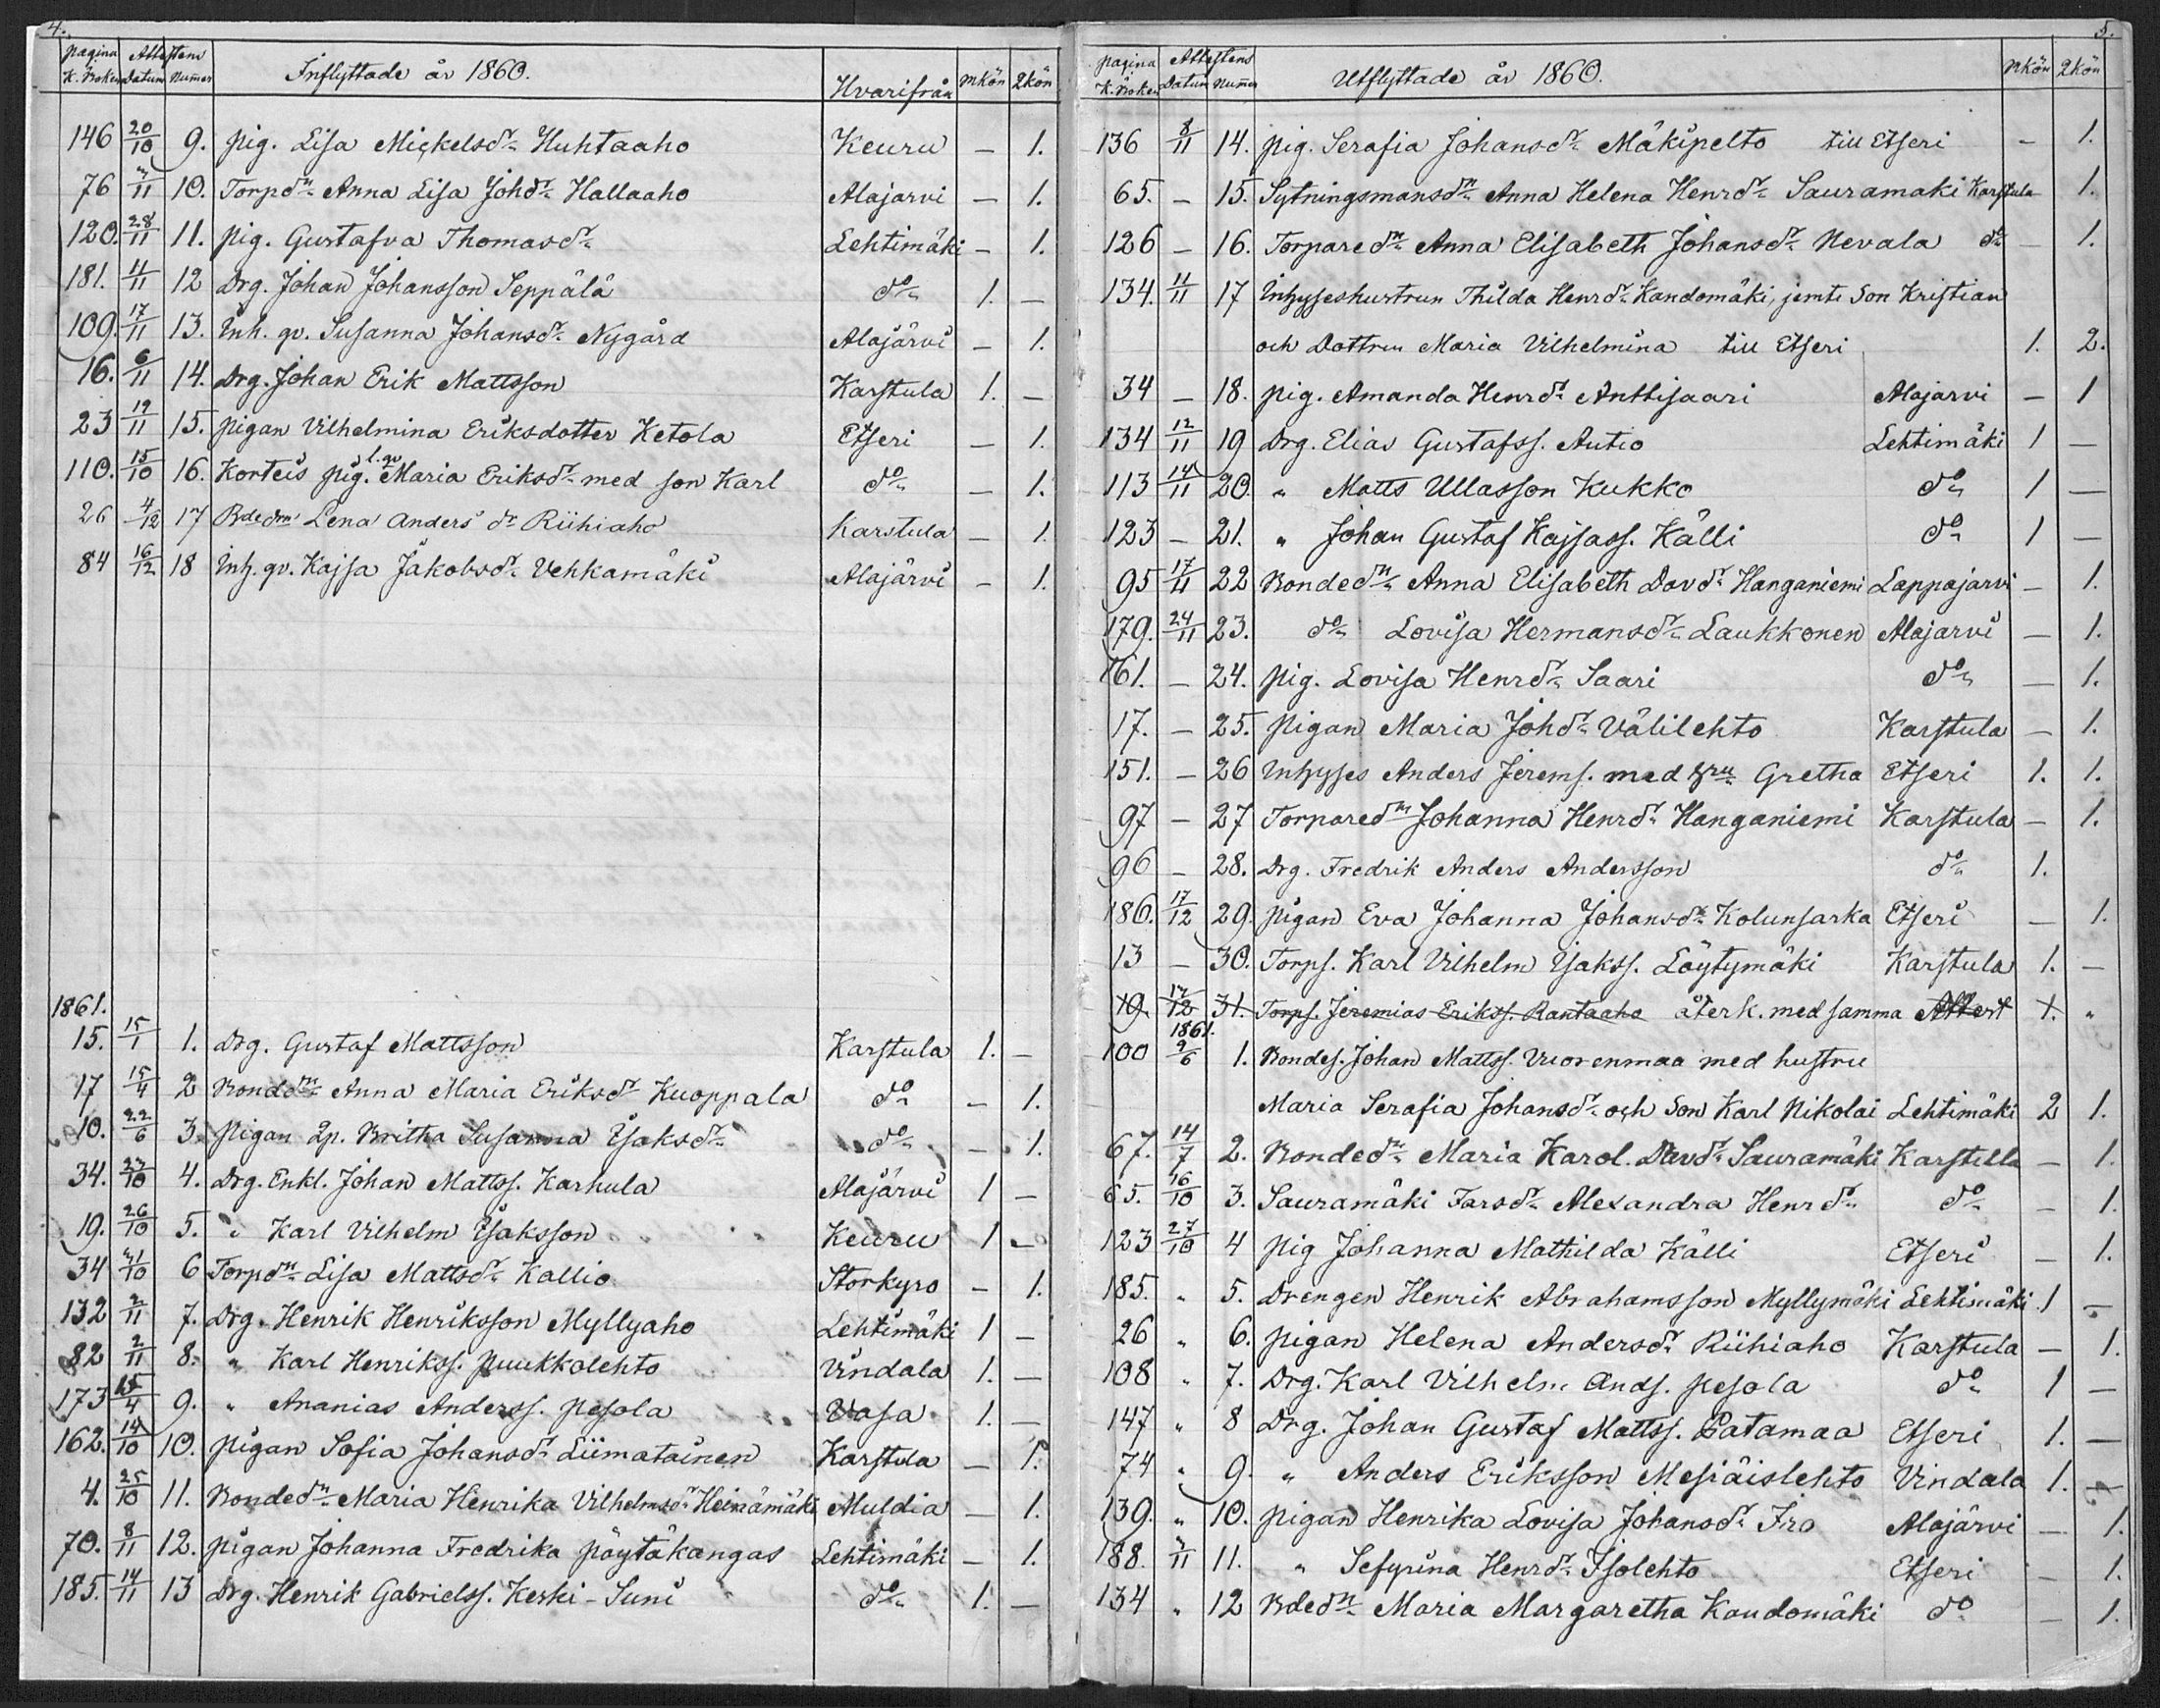 4.
pagina K. Boken Attestens Datum Numer Inflyttade år 1860. Hvarifrån Mkön Qkön
146 20/10 9. pig. Lisa Mickelsdr Huhtaaho Keuru — 1.
76 /11 10. Torpdn Anna Lisa Johdr Hallaaho Alajarvi — 1.
120. 28/11 11. pig. Gustafva Thomasdr Lehtimäki — 1.
181. 11/11 12 Drg. Johan Johansson Seppälä do 1. —
109. 17/11 13. Inh. qv. Susanna Johansdr Nygård Alajärvi — 1.
16. 6/11 14. Drg. Johan Erik Mattsson Karstula 1. —
23 19/11 15. pigan Vilhelmina Eriksdotter Ketola Etseri — 1.
110. 15/10 16. Korteis pig. l. qv Maria Eriksdr med son Karl do — 1.
26 4/12 17 Bdedrn Lena Anders dr Riihiaho Karstula — 1.
84 16/12 18 Inh. qv. Kajsa Jakobsdr Vehkamäki Alajärvi — 1.
1861.
15. 15/1 1. Drg. Gustaf Mattsson Karstula 1. —
17 15/4 2 Bondedn Anna Maria Eriksdr Kuoppala do — 1.
10. 22/6 3. pigan Qp. Britha Susanna Isaksdr do — 1.
34. 27/10 4. Drg. Enkl. Johan Mattss. Karhula Alajärvi 1 —
19. 26/10 5. " Karl Vilhelm Isaksson Keuru 1 —
34 /10 6 Torpdn Lisa Mattsdr Kallio Storkyro — 1.
132 2/11 7. Drg. Henrik Henriksson Myllyaho Lehtimäki 1 —
82 2/11 8. " Karl Henrikss. Puukkolehto Vindala 1. —
173 15/4 9. " Ananias Anderss. Pesola Vasa 1. —
162. 14/10 10. pigan Sofia Johansdr Liimatainen Karstula — 1.
4. 25/10 11. Bondedn Maria Henrika Vilhelmsdr Heinämäki Muldia — 1.
70. 8/11 12. pigan Johanna Fredrika Pöytäkangas Lehtimäki — 1.
185. 14/11 13 Drg. Henrik Gabrielss. Keski-Suni do 1. —
5.
pagina K. Boken Attestens Datum Numer Utflyttade år 1860. Mkön Qkön
136 8/11 14. pig. Serafia Johansdr Mäkipelto till Etseri — 1.
65. — 15. Sytningsmansdn Anna Helena Henrdr Sauramaki Karstula 1.
126 — 16. Torparedn Anna Elisabeth Johansdr Nevala do — 1.
134. 11/11 17 Inhyseshustrun Thilda Henrdr Kandomäki, jemte Son Kristian
och Dottren Maria Vilhelmina till Etseri 1. 2.
34 — 18. pig. Amanda Henrdr Anttisaari Alajarvi — 1
134 12/11 19 Drg. Elias Gustafss. Autio Lehtimäki 1 —
113 14/11 20. " Matts Ullasson Kukko do 1 —
123 — 21. " Johan Gustaf Kajsass. Källi do 1 —
95 17/11 22 Bondedn Anna Elisabeth Davdr Hanganiemi Lappajarvi — 1.
179. 24/11 23. do Lovisa Hermansdr Laukkonen Alajarvi — 1.
161. — 24. pig. Lovisa Henrdr Saari do — 1.
17. — 25. pigan Maria Johdr Välilehto Karstula — 1.
151. — 26 Inhyses Anders Jerems. med hru Gretha Etseri 1. 1.
97 — 27 Torparedn Johanna Henrdr Hanganiemi Karstula — 1.
96 — 28. Drg. Fredrik Anders Andersson do 1.
186. 17/12 29. pigan Eva Johanna Johansdr Kolunsarka Etseri — 1.
13 — 30. Torps. Karl Vilhelm Isakss. Löytymäki Karstula 1. —
19. 17/12 31. Torps. Jeremias Erikss. Rantaaho återk. med samma Attest 1. "
1861.
100 9/6 1. Bondes. Johan Mattss. Vuorenmaa med hustru
Maria Serafia Johansdr och Son Karl Nikolai Lehtimäki 2 1.
67. 14/7 2. Bondedn Maria Karol. Davdr Sauramäki Karstula — 1.
65. 16/10 3. Sauramäki Farsdr Alexandra Henrdr do — 1.
123 27/10 4 pig Johanna Mathilda Källi Etseri — 1.
185. " 5. Drengen Henrik Abrahamsson Myllymäki Lehtimäki 1 —
26 " 6. pigan Helena Andersdr Riihiaho Karstula — 1.
108 " 7. Drg. Karl Vilhelm Ands. Pesola do 1 —
147 " 8 Drg. Johan Gustaf Mattss. Patamaa Etseri 1. —
74 " 9. " Anders Eriksson Mesiäislehto Vindala 1. —
139. " 10. pigan Henrika Lovisa Johansdr Iro Alajärvi — 1.
188. /11 11. " Sefyrina Henrdr Isolehto Etseri — 1.
134 " 12 Bdedn Maria Margaretha Kandomäki do — 1.